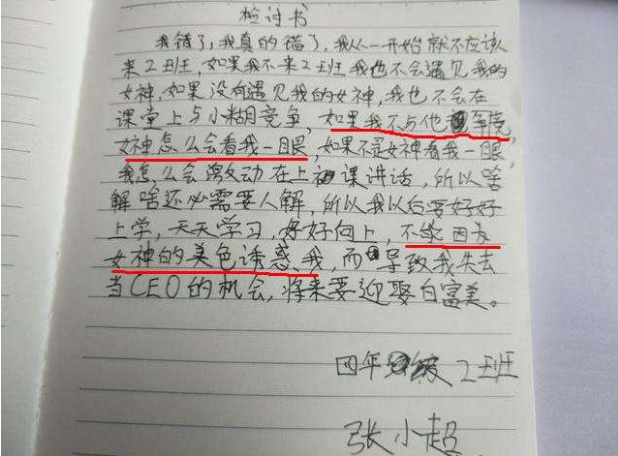 检讨书
我错了,我真的错了,我从一开始就不应该
来2班,如果我不来2班我也不会遇见我的
女神,如果没有遇见我的女神,我也不会在
课堂上与小糊竞争,如果我不与他竞
女神怎么会看我一眼,如果不是女神看我一眼,
我怎么会激动在上课讲话,所以啥
解啥还必需要人解,所以我以后要好好
上学,天天学习,好好向上,不能因为
女神的美色诱惑我,而导致我失去
当CEO的机会,将来要迎娶白富美。
四年级2班
张小超